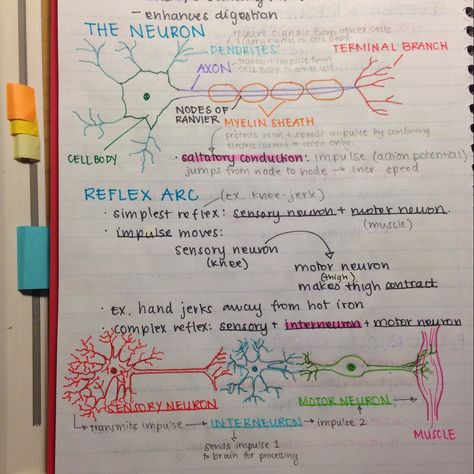 - enhances digestion
THE NEURON
receive signals from other cells
& carry signal to cell body
DENDRITES
TERMINAL BRANCH
AXON
transmit impulse from
cell body to other cells
NODES OF
RANVIER
MYELIN SHEATH
protects axon + speeds impulse by confining
electric current to axon only.
CELL BODY
· saltatory conduction: impulse (action potential)
jumps from node to node → incr. speed
REFLEX ARC
(Ex. knee-jerk)
· simplest reflex: sensory neuron + motor neuron.
(muscle)
· impulse moves:
sensory neuron
(knee)
motor neuron
(thigh)
makes thigh contract
· Ex. hand jerks away from hot iron
· complex reflex: sensory + interneuron + motor neuron
SENSORY NEURON
MOTOR NEURON
transmits impulse → INTERNEURON → impulse 2
MUSCLE
sends impulse 1
to brain for processing